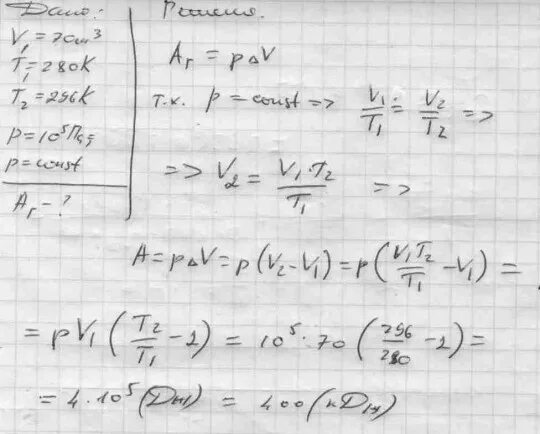 Дано:
V₁ = 70 см³
T₁ = 280К
T₂ = 296К
p = 10⁵ Па
p = const
Aг - ?
Решение.
Aг = p△V
т.к. p = const => V₁/T₁ = V₂/T₂ =>
=> V₂ = V₁·T₂/T₁ =>
A = p△V = p(V₂ - V₁) = p(V₁T₂/T₁ - V₁) =
= pV₁(T₂/T₁ - 1) = 10⁵·70(296/280 - 1) =
= 4·10⁵(Дж) = 400(кДж)